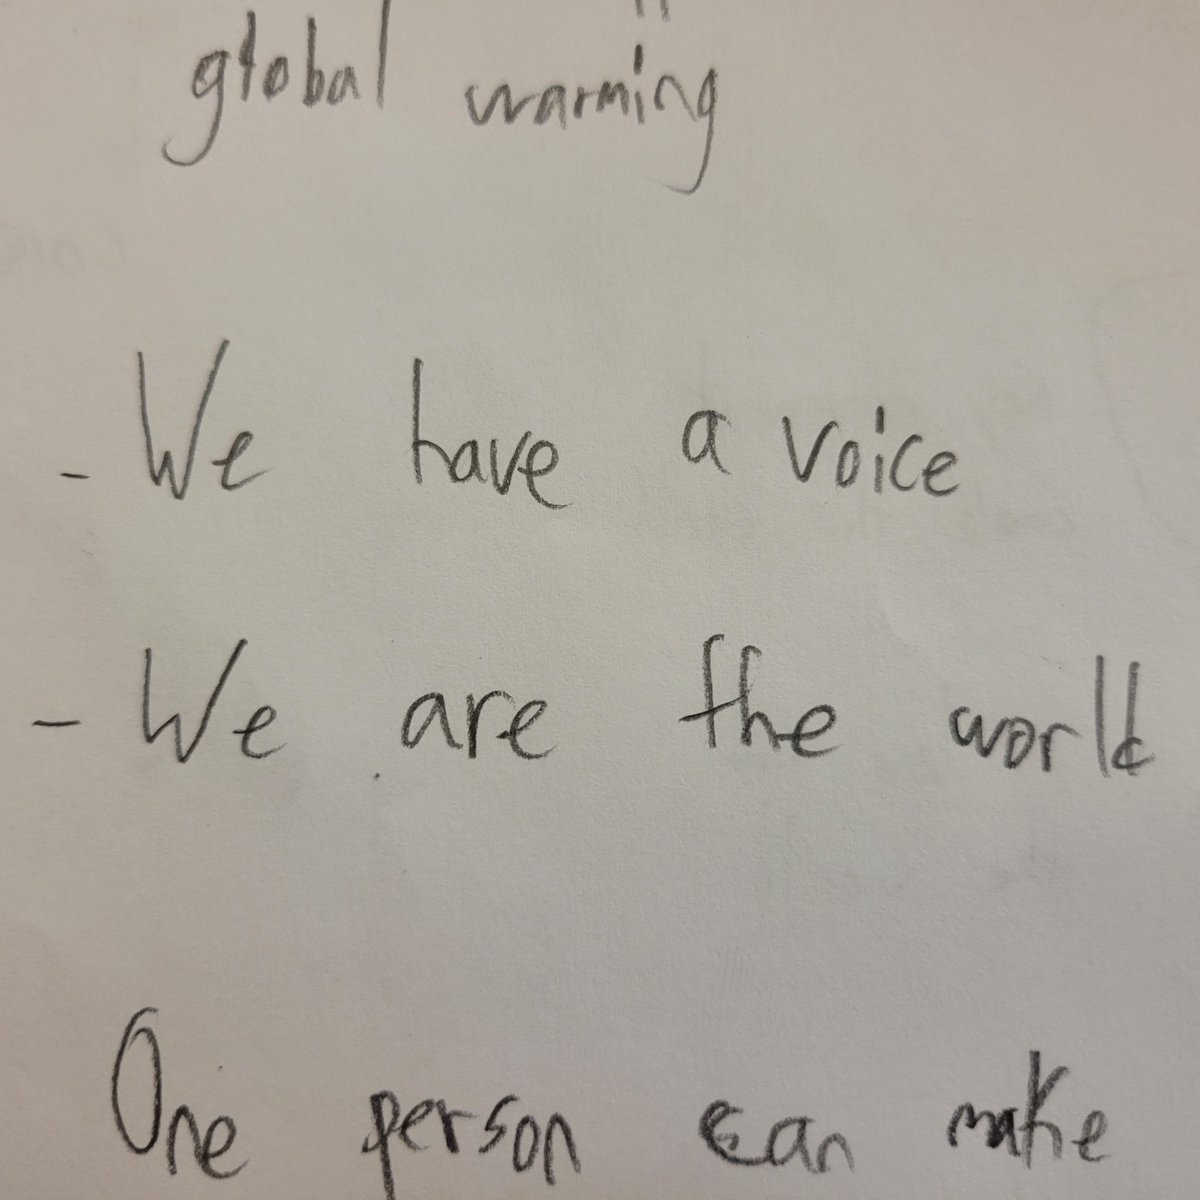 global warming
- We have a voice
- We are the world
One person can make